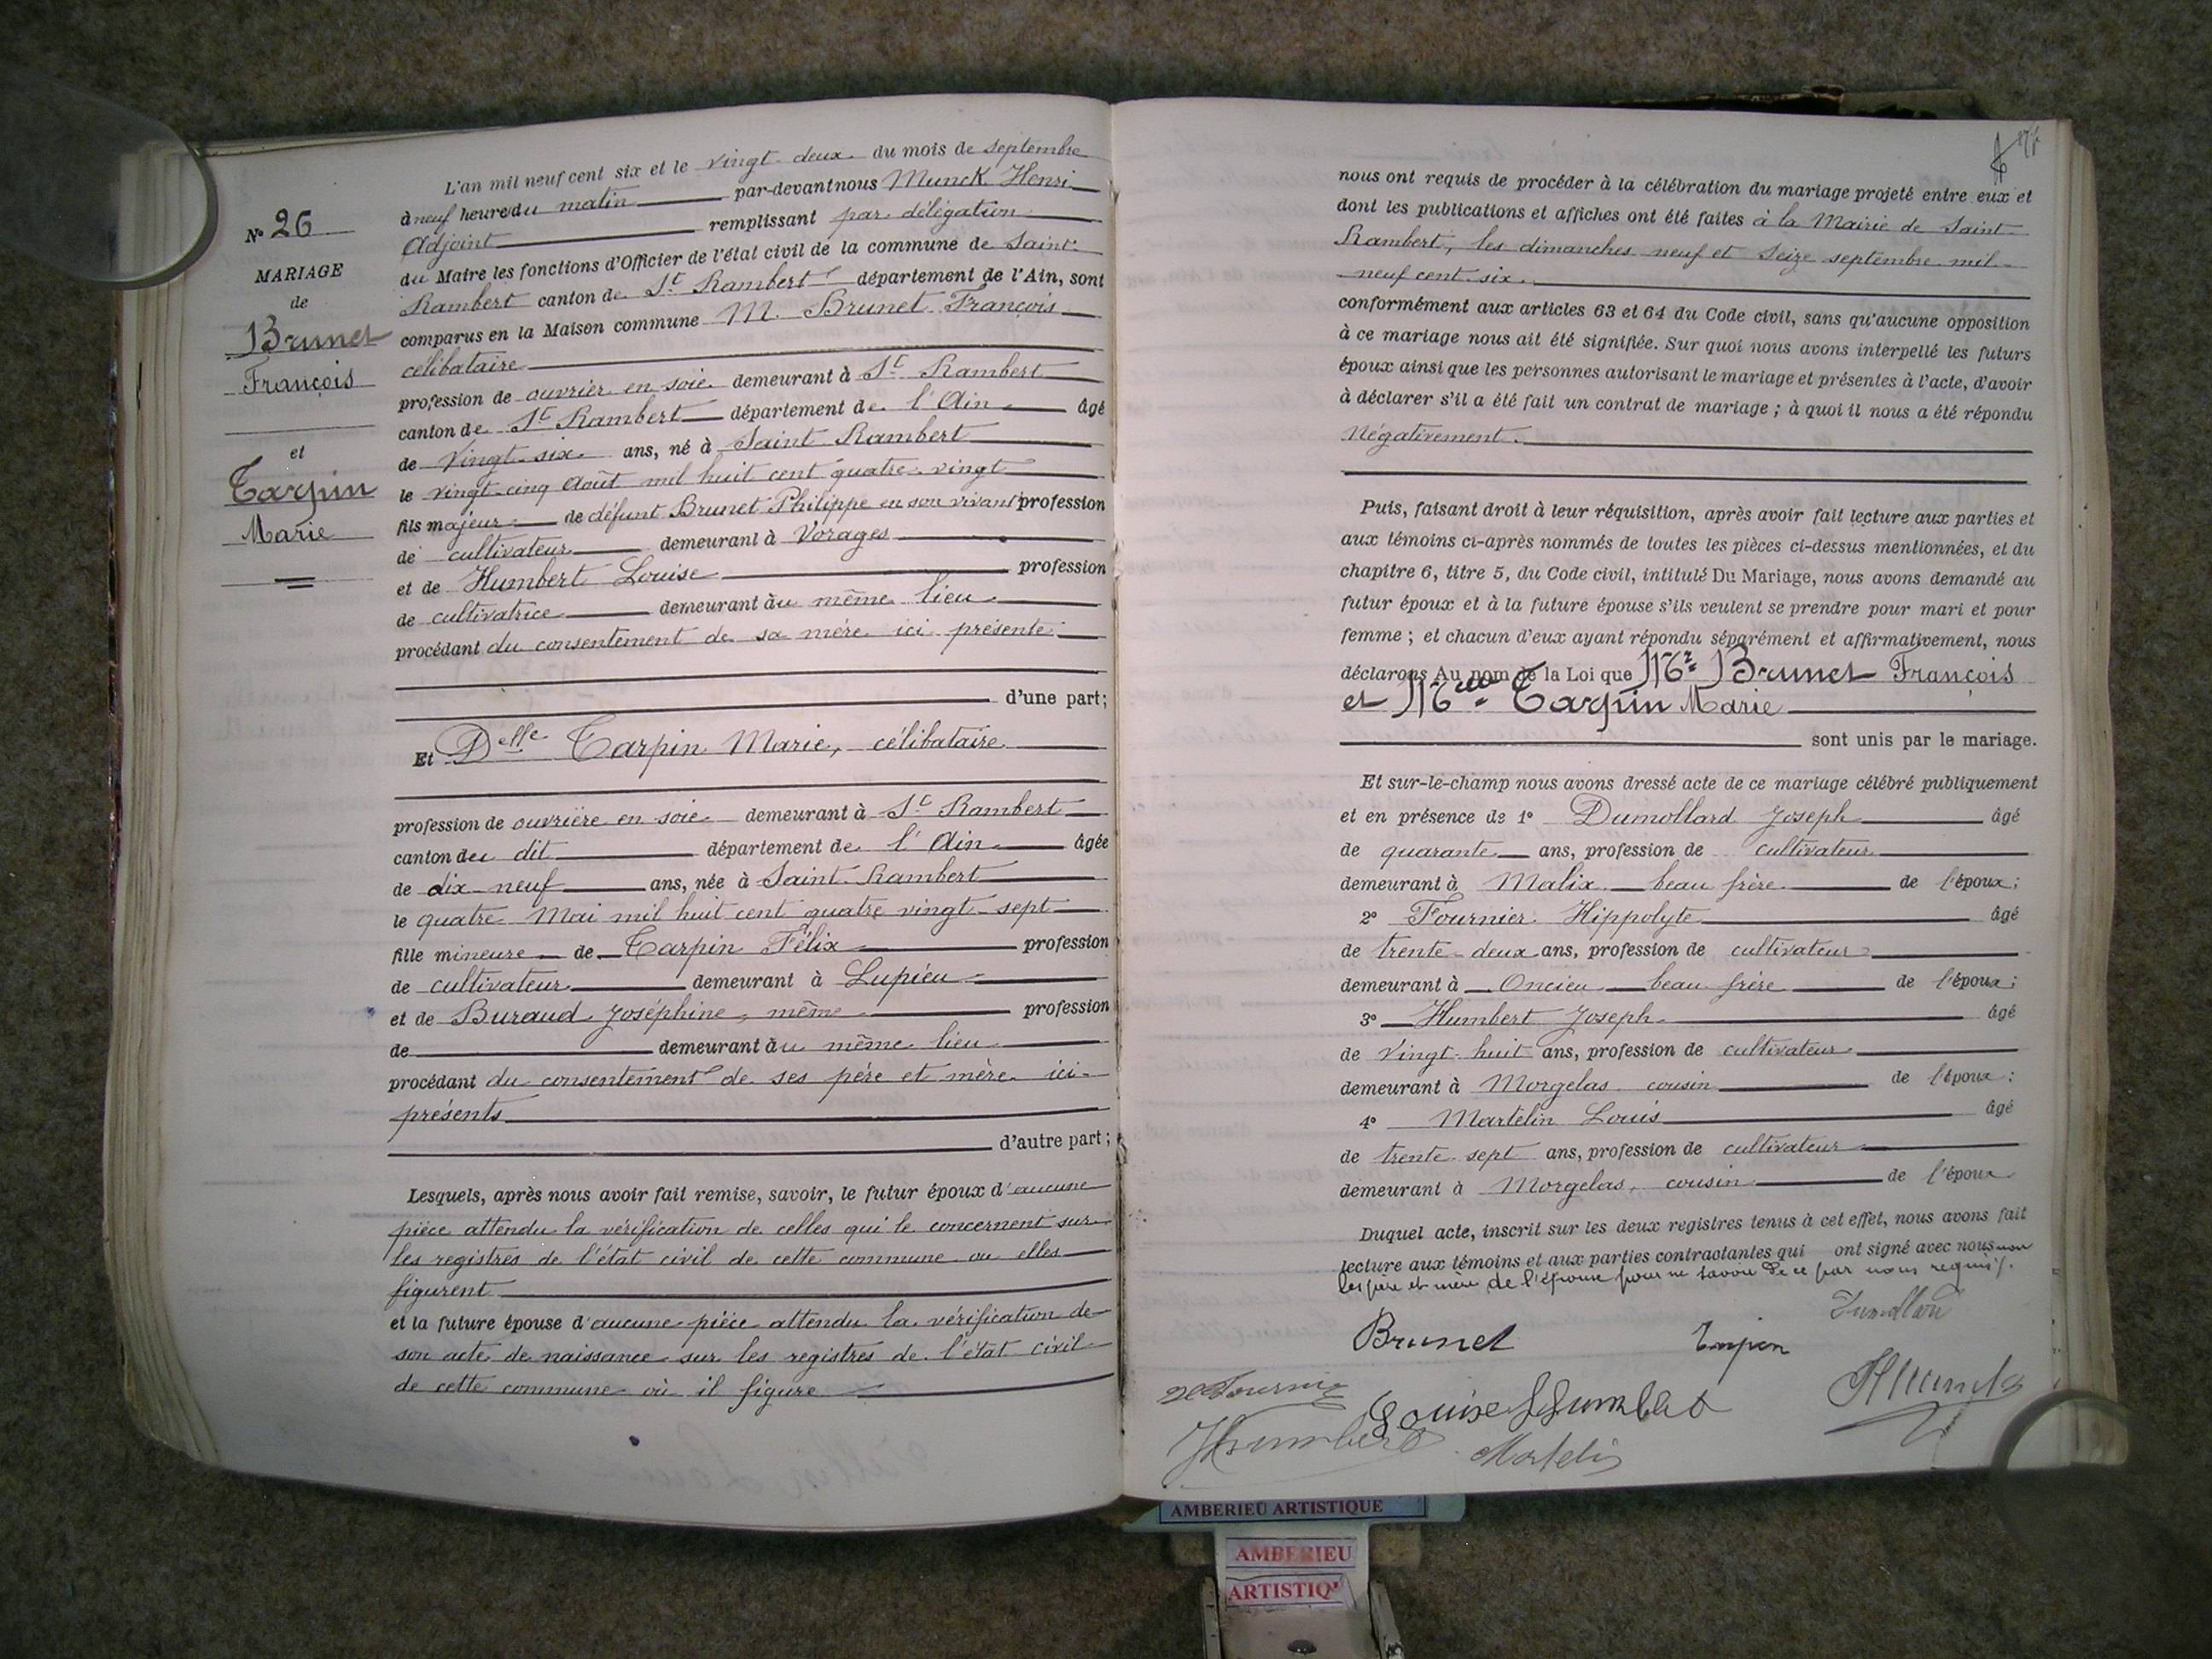 L'an mil neuf cent six et le vingt-deux du mois de septembre
à neuf heure du matin par-devant nous Munck Henri
Adjoint remplissant par délégation
du Maire les fonctions d'Officier de l'état civil de la commune de Saint-
Rambert canton de St Rambert département de l'Ain, sont
comparus en la Maison commune M. Brunet François
célibataire
profession de ouvrier en soie demeurant à St Rambert
canton de St Rambert département de l'Ain âgé
de vingt-six ans, né à Saint-Rambert
le vingt-cinq Août mil huit cent quatre-vingt
fils majeur de défunt Brunet Philippe en son vivant profession
de cultivateur demeurant à Vorages
et de Humbert Louise profession
de cultivatrice demeurant àu même lieu
procédant du consentement de sa mère ici présente
d'une part;
Et Delle Tarpin Marie, célibataire
profession de ouvrière en soie demeurant à St Rambert
canton deu dit département de l'Ain âgée
de dix-neuf ans, née à Saint-Rambert
le quatre Mai mil huit cent quatre vingt-sept
fille mineure de Tarpin Félix profession
de cultivateur demeurant à Lupieu
et de Buraud Joséphine, même profession
de demeurant àu même lieu
procédant du consentement de ses père et mère ici-
présents
d'autre part;
Lesquels, après nous avoir fait remise, savoir, le futur époux d'aucune
pièce attendu la vérification de celles qui le concernent sur
les registres de l'état civil de cette commune ou elles
figurent
et la future épouse d'aucune pièce attendu la vérification de
son acte de naissance sur les registres de l'état civil
de cette commune où il figure
N° 26
MARIAGE
de
Brunet
François
et
Tarpin
Marie
nous ont requis de procéder à la célébration du mariage projeté entre eux et
dont les publications et affiches ont été faites à la Mairie de Saint-
Rambert, les dimanches neuf et seize septembre mil
neuf cent six.
conformément aux articles 63 et 64 du Code civil, sans qu'aucune opposition
à ce mariage nous ait été signifiée. Sur quoi nous avons interpellé les futurs
époux ainsi que les personnes autorisant le mariage et présentes à l'acte, d'avoir
à déclarer s'il a été fait un contrat de mariage; à quoi il nous a été répondu
Négativement.
Puis, faisant droit à leur réquisition, après avoir fait lecture aux parties et
aux témoins ci-après nommés de toutes les pièces ci-dessus mentionnées, et du
chapitre 6, titre 5, du Code civil, intitulé Du Mariage, nous avons demandé au
futur époux et à la future épouse s'ils veulent se prendre pour mari et pour
femme; et chacun d'eux ayant répondu séparément et affirmativement, nous
déclarons Au nom de la Loi que Mr Brunet François
et Mlle Tarpin Marie
sont unis par le mariage.
Et sur-le-champ nous avons dressé acte de ce mariage célébré publiquement
et en présence de 1° Dumollard Joseph âgé
de quarante ans, profession de cultivateur
demeurant à Malix beau frère de l'époux;
2° Fournier Hippolyte âgé
de trente-deux ans, profession de cultivateur
demeurant à Oncieu beau frère de l'époux;
3° Humbert Joseph âgé
de vingt-huit ans, profession de cultivateur
demeurant à Morgelas cousin de l'époux;
4° Martelin Louis âgé
de trente-sept ans, profession de cultivateur
demeurant à Morgelas, cousin de l'époux
Duquel acte, inscrit sur les deux registres tenus à cet effet, nous avons fait
lecture aux témoins et aux parties contractantes qui ont signé avec nous non
les père et mère de l'épouse pour ne savoir de ce par nous requis.
Dumollard
Brunet Tarpin
Fournier Louise Humbert HMunck
JHumbert Martelin
AMBERIEU ARTISTIQUE
AMBERIEU
ARTISTIQ'